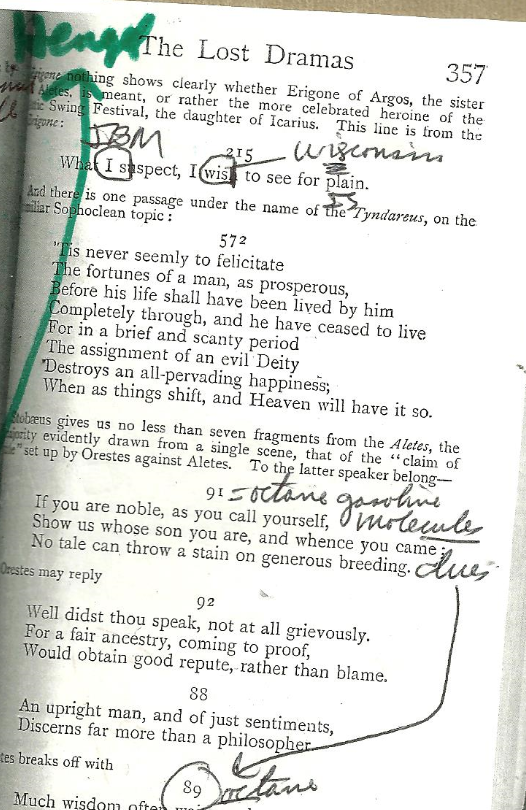 The Lost Dramas
357
nothing shows clearly whether Erigone of Argos, the sister
Aletes, is meant, or rather the more celebrated heroine of the
Swing Festival, the daughter of Icarius. This line is from the
IBM
215 Wisconsin
What I suspect, I wish to see for plain.
And there is one passage under the name of the Tyndareus, on the
Sophoclean topic :
572
"Tis never seemly to felicitate
The fortunes of a man, as prosperous,
Before his life shall have been lived by him
Completely through, and he have ceased to live
For in a brief and scanty period
The assignment of an evil Deity
Destroys an all-pervading happiness;
When as things shift, and Heaven will have it so.
Stobæus gives us no less than seven fragments from the Aletes, the
evidently drawn from a single scene, that of the "claim of
set up by Orestes against Aletes. To the latter speaker belong—
91 = octane gasoline
If you are noble, as you call yourself, molecules
Show us whose son you are, and whence you came:
No tale can throw a stain on generous breeding. clues
Orestes may reply
92
Well didst thou speak, not at all grievously.
For a fair ancestry, coming to proof,
Would obtain good repute, rather than blame.
88
An upright man, and of just sentiments,
Discerns far more than a philosopher
breaks off with
89 octane
Much wisdom often